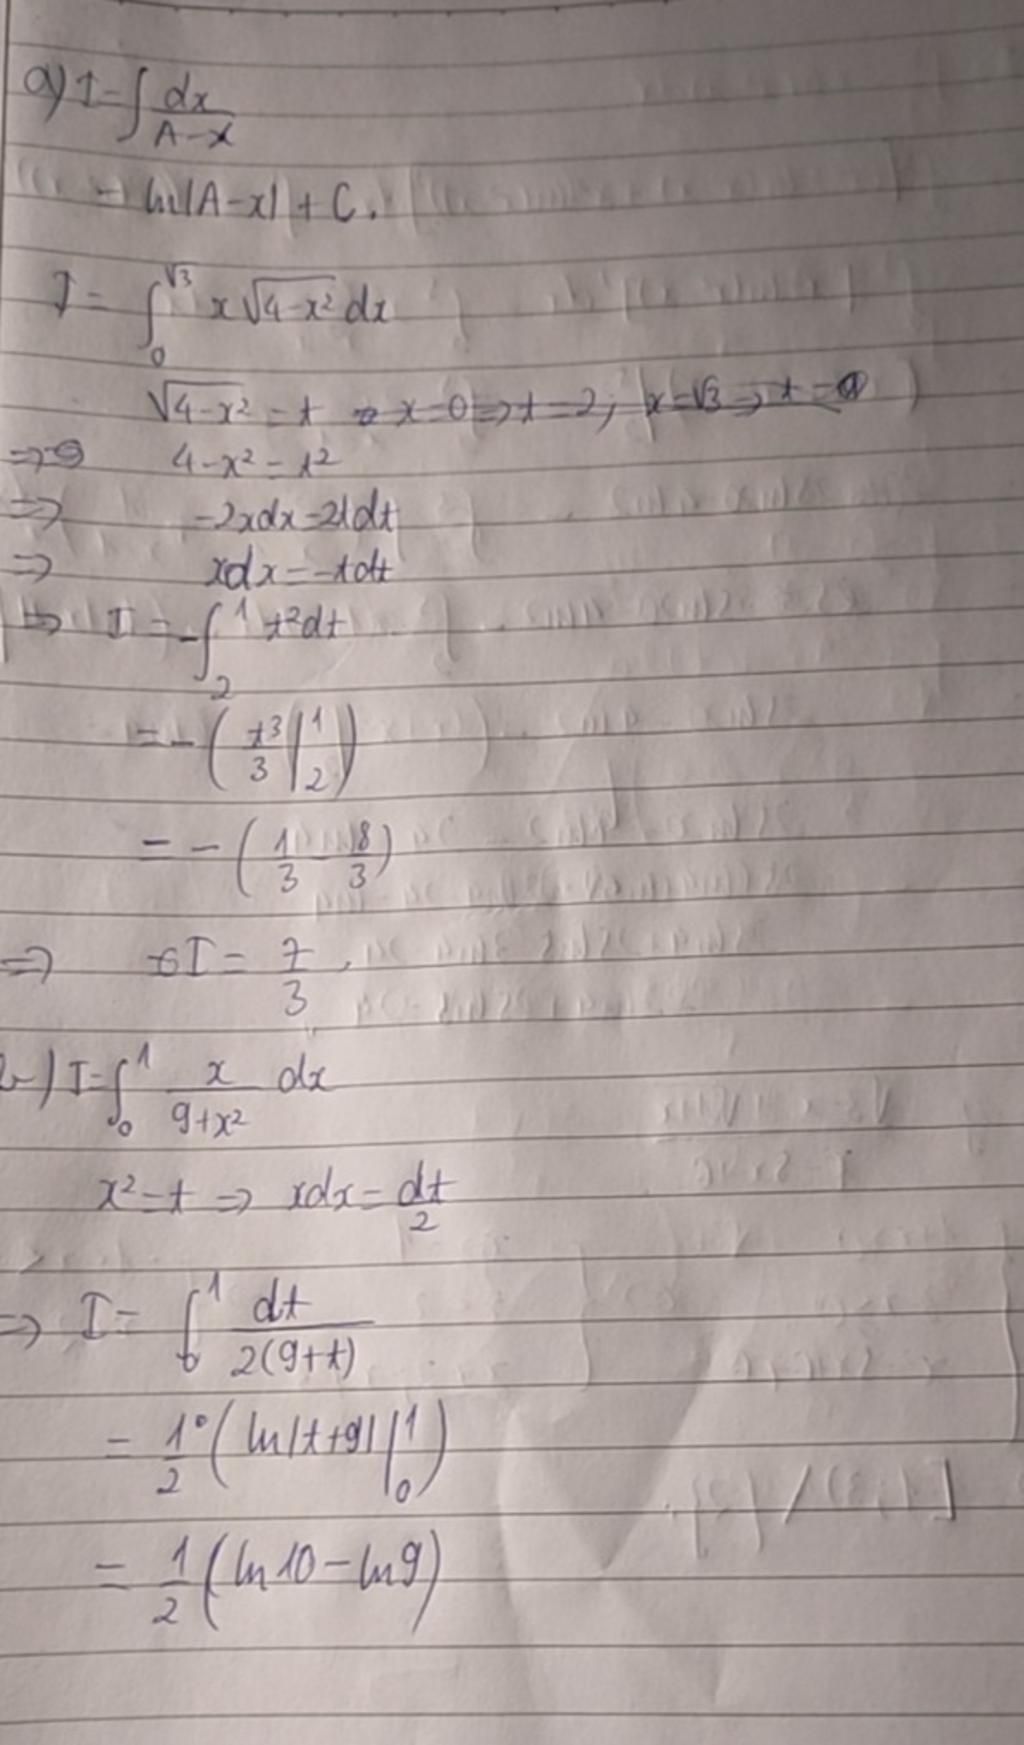 a) I = ∫ dx / A - x
- ln|A - x| + C.
I = ∫₀^√3 x √4-x² dx
√4-x² = t x = 0 => t = 2; x = √3 => t =
=> 4 - x² = t²
=> -2xdx = 2tdt
=> xdx = -tdt
=> I = -∫₂¹ t²dt
= - ( t³/3 |¹₂ )
= - ( 1/3 - 8/3 )
=> I = 7/3.
b) I = ∫₀¹ x / 9+x² dx
x² = t => xdx = dt/2
=> I = ∫₀¹ dt / 2(9+t)
= 1/2 ( ln|t+9| |¹₀ )
= 1/2 ( ln10 - ln9 )